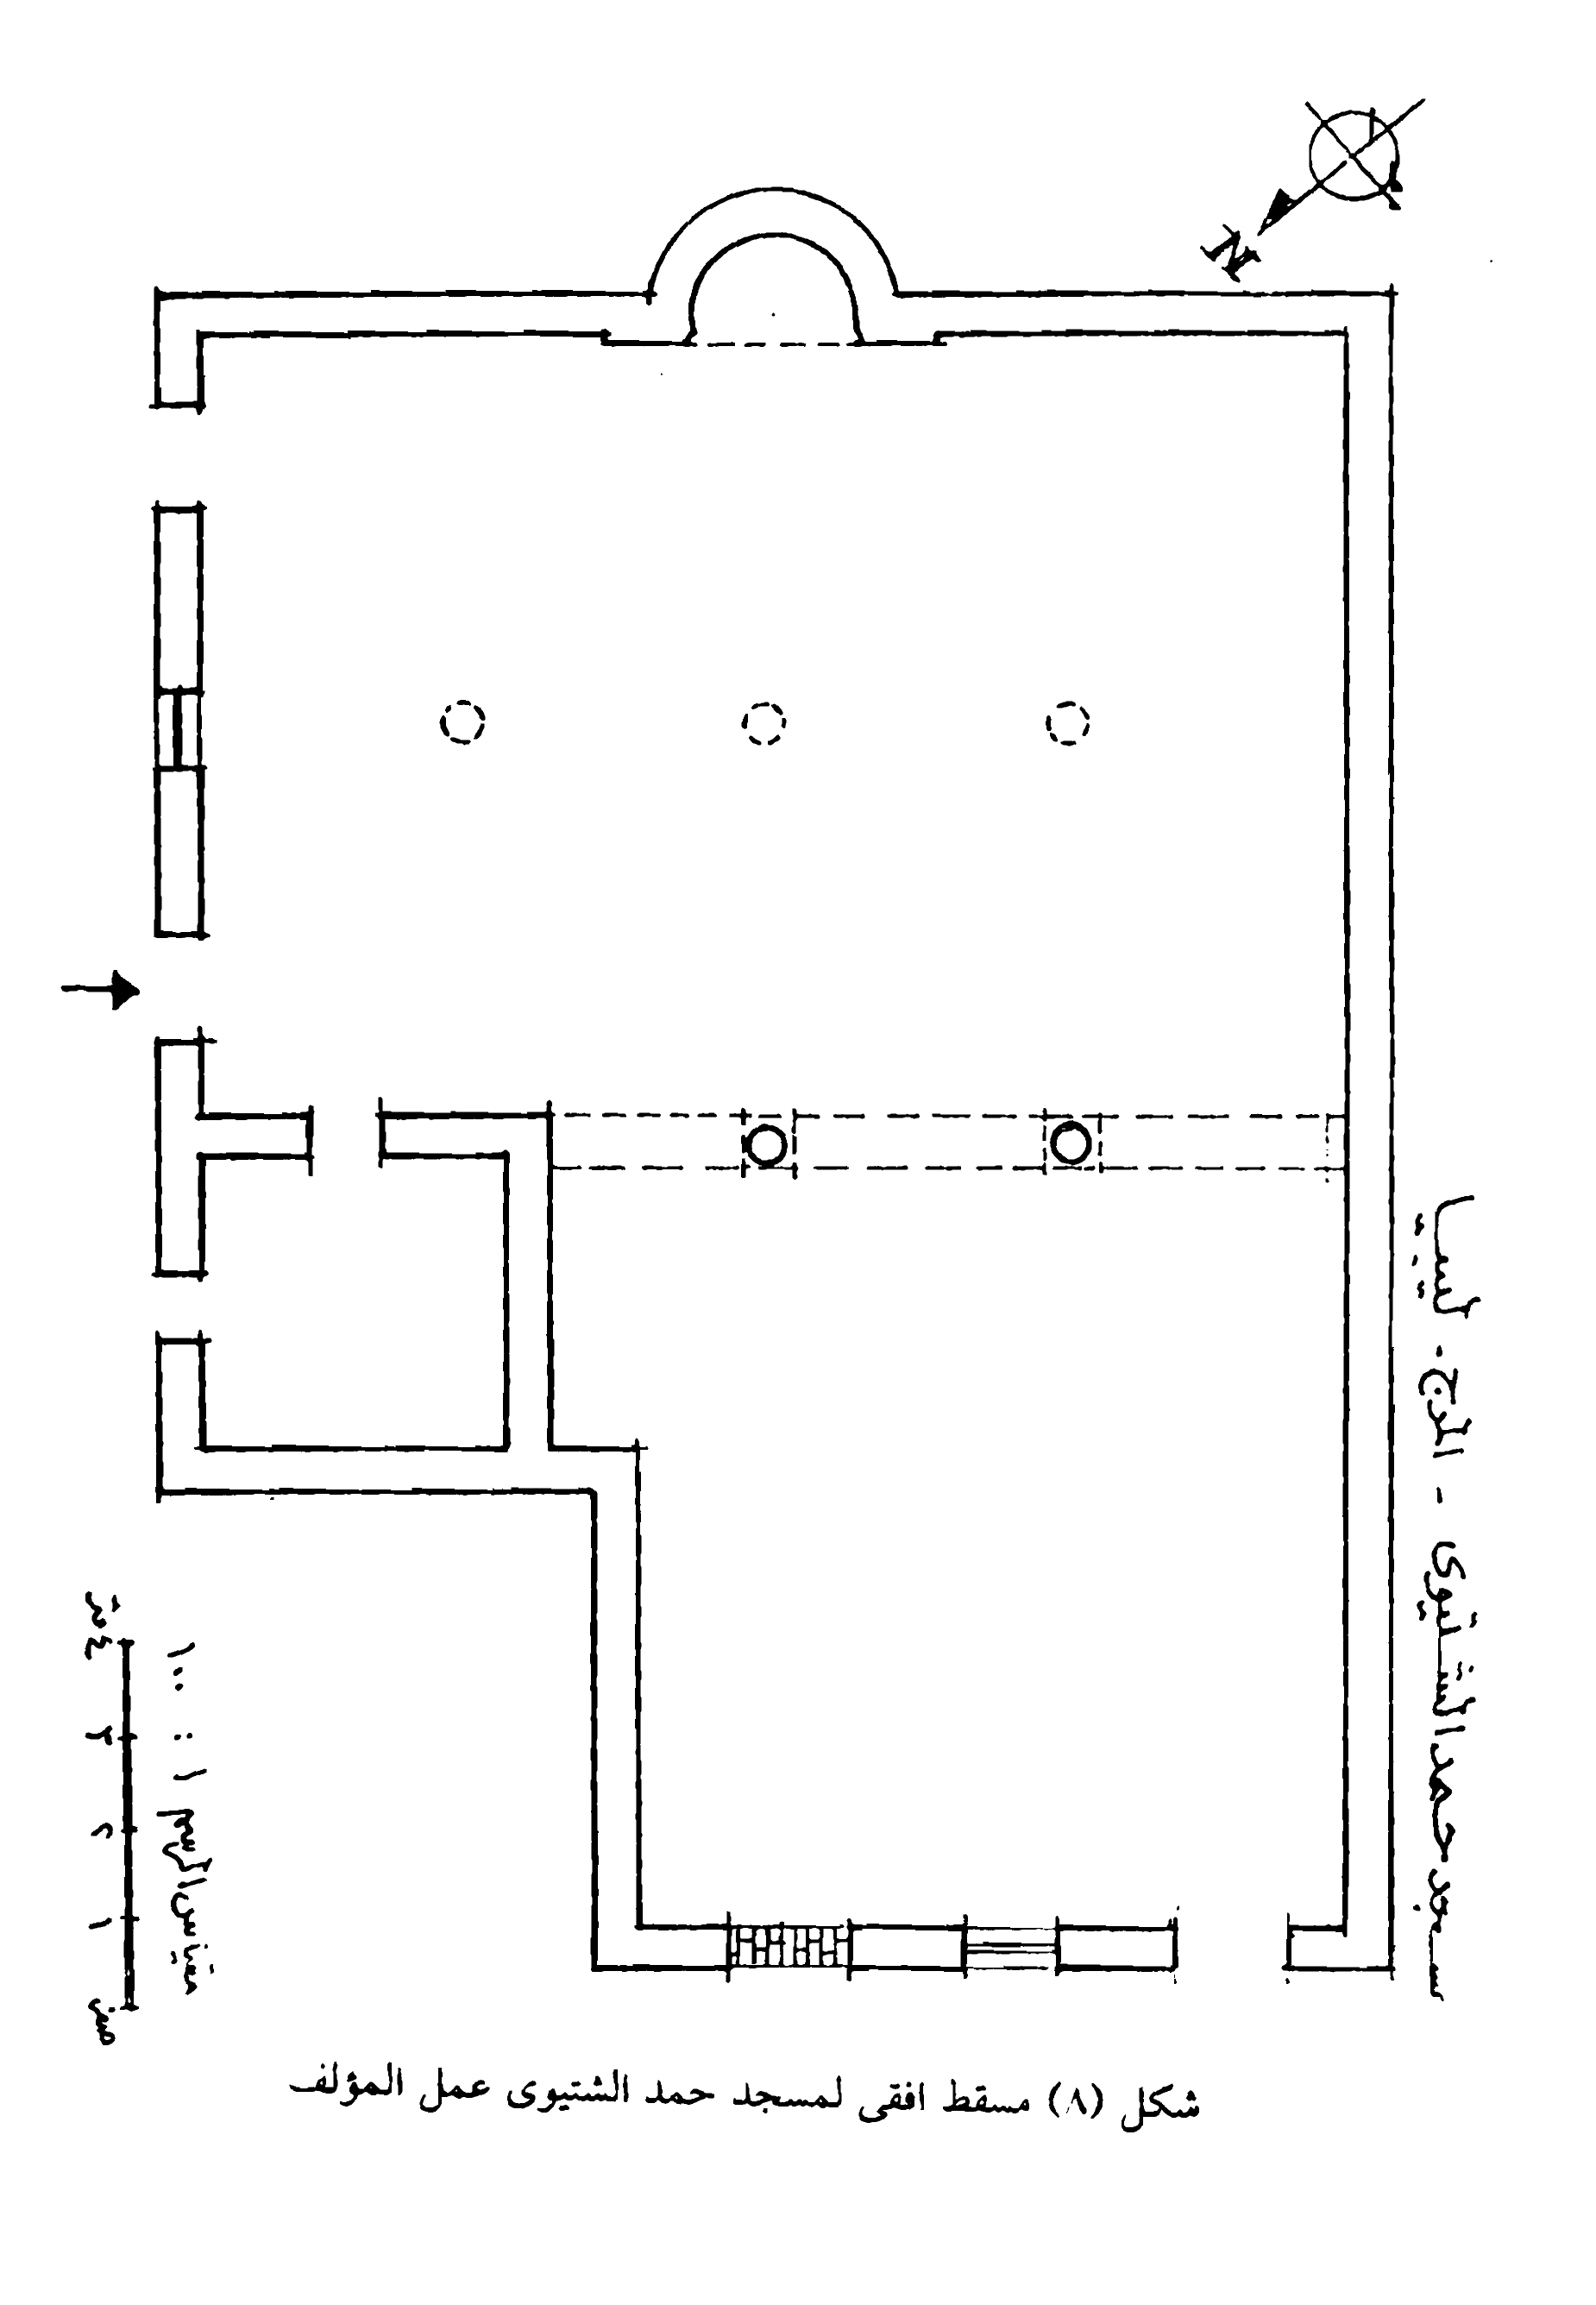 N
مسجد حمد الشتيوى - المرج - ليبيا
مقياس الرسم ١ : ١٠٠
صفر ١ ٢ ٣ ٤ متر
شكل (٨) مسقط افقى لمسجد حمد الشتيوى عمل المؤلف